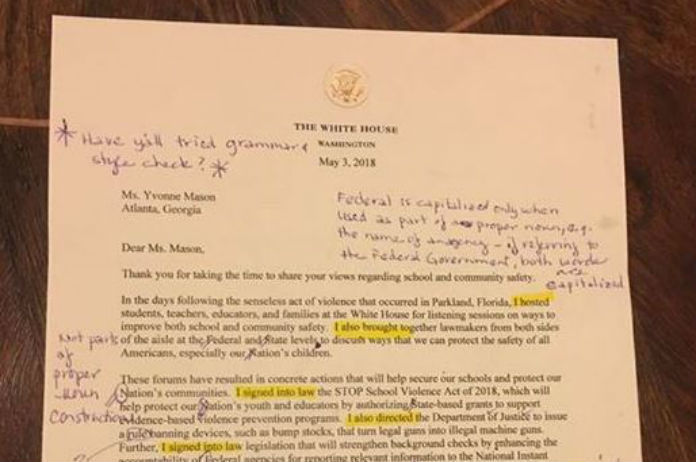 THE WHITE HOUSE
WASHINGTON
May 3, 2018
* Have y'all tried grammar &
style check? *
Ms. Yvonne Mason
Atlanta, Georgia
Federal is capitalized only when
used as part of proper noun, e.g.
the name of – if referring to
the Federal Government, both words
are
capitalized
Dear Ms. Mason,
Thank you for taking the time to share your views regarding school and community safety.
In the days following the senseless act of violence that occurred in Parkland, Florida, I hosted
students, teachers, educators, and families at the White House for listening sessions on ways to
improve both school and community safety. I also brought together lawmakers from both sides
of the aisle at the Federal and State levels to discuss ways that we can protect the safety of all
Americans, especially our Nation's children.
Not part
of
proper
noun
construction
These forums have resulted in concrete actions that will help secure our schools and protect our
Nation's communities. I signed into law the STOP School Violence Act of 2018, which will
help protect our Nation's youth and educators by authorizing State-based grants to support
evidence-based violence prevention programs. I also directed the Department of Justice to issue
a rule banning devices, such as bump stocks, that turn legal guns into illegal machine guns.
Further, I signed into law legislation that will strengthen background checks by enhancing the
accountability of Federal agencies for reporting relevant information to the National Instant